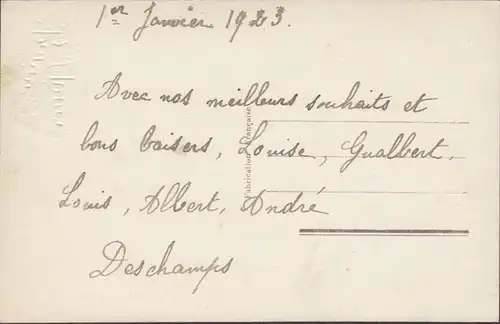 1er Janvier 1923.
Avec nos meilleurs souhaits et
bons baisers, Louise, Gualbert,
Louis, Albert, André
Deschamps
Fabrication Française